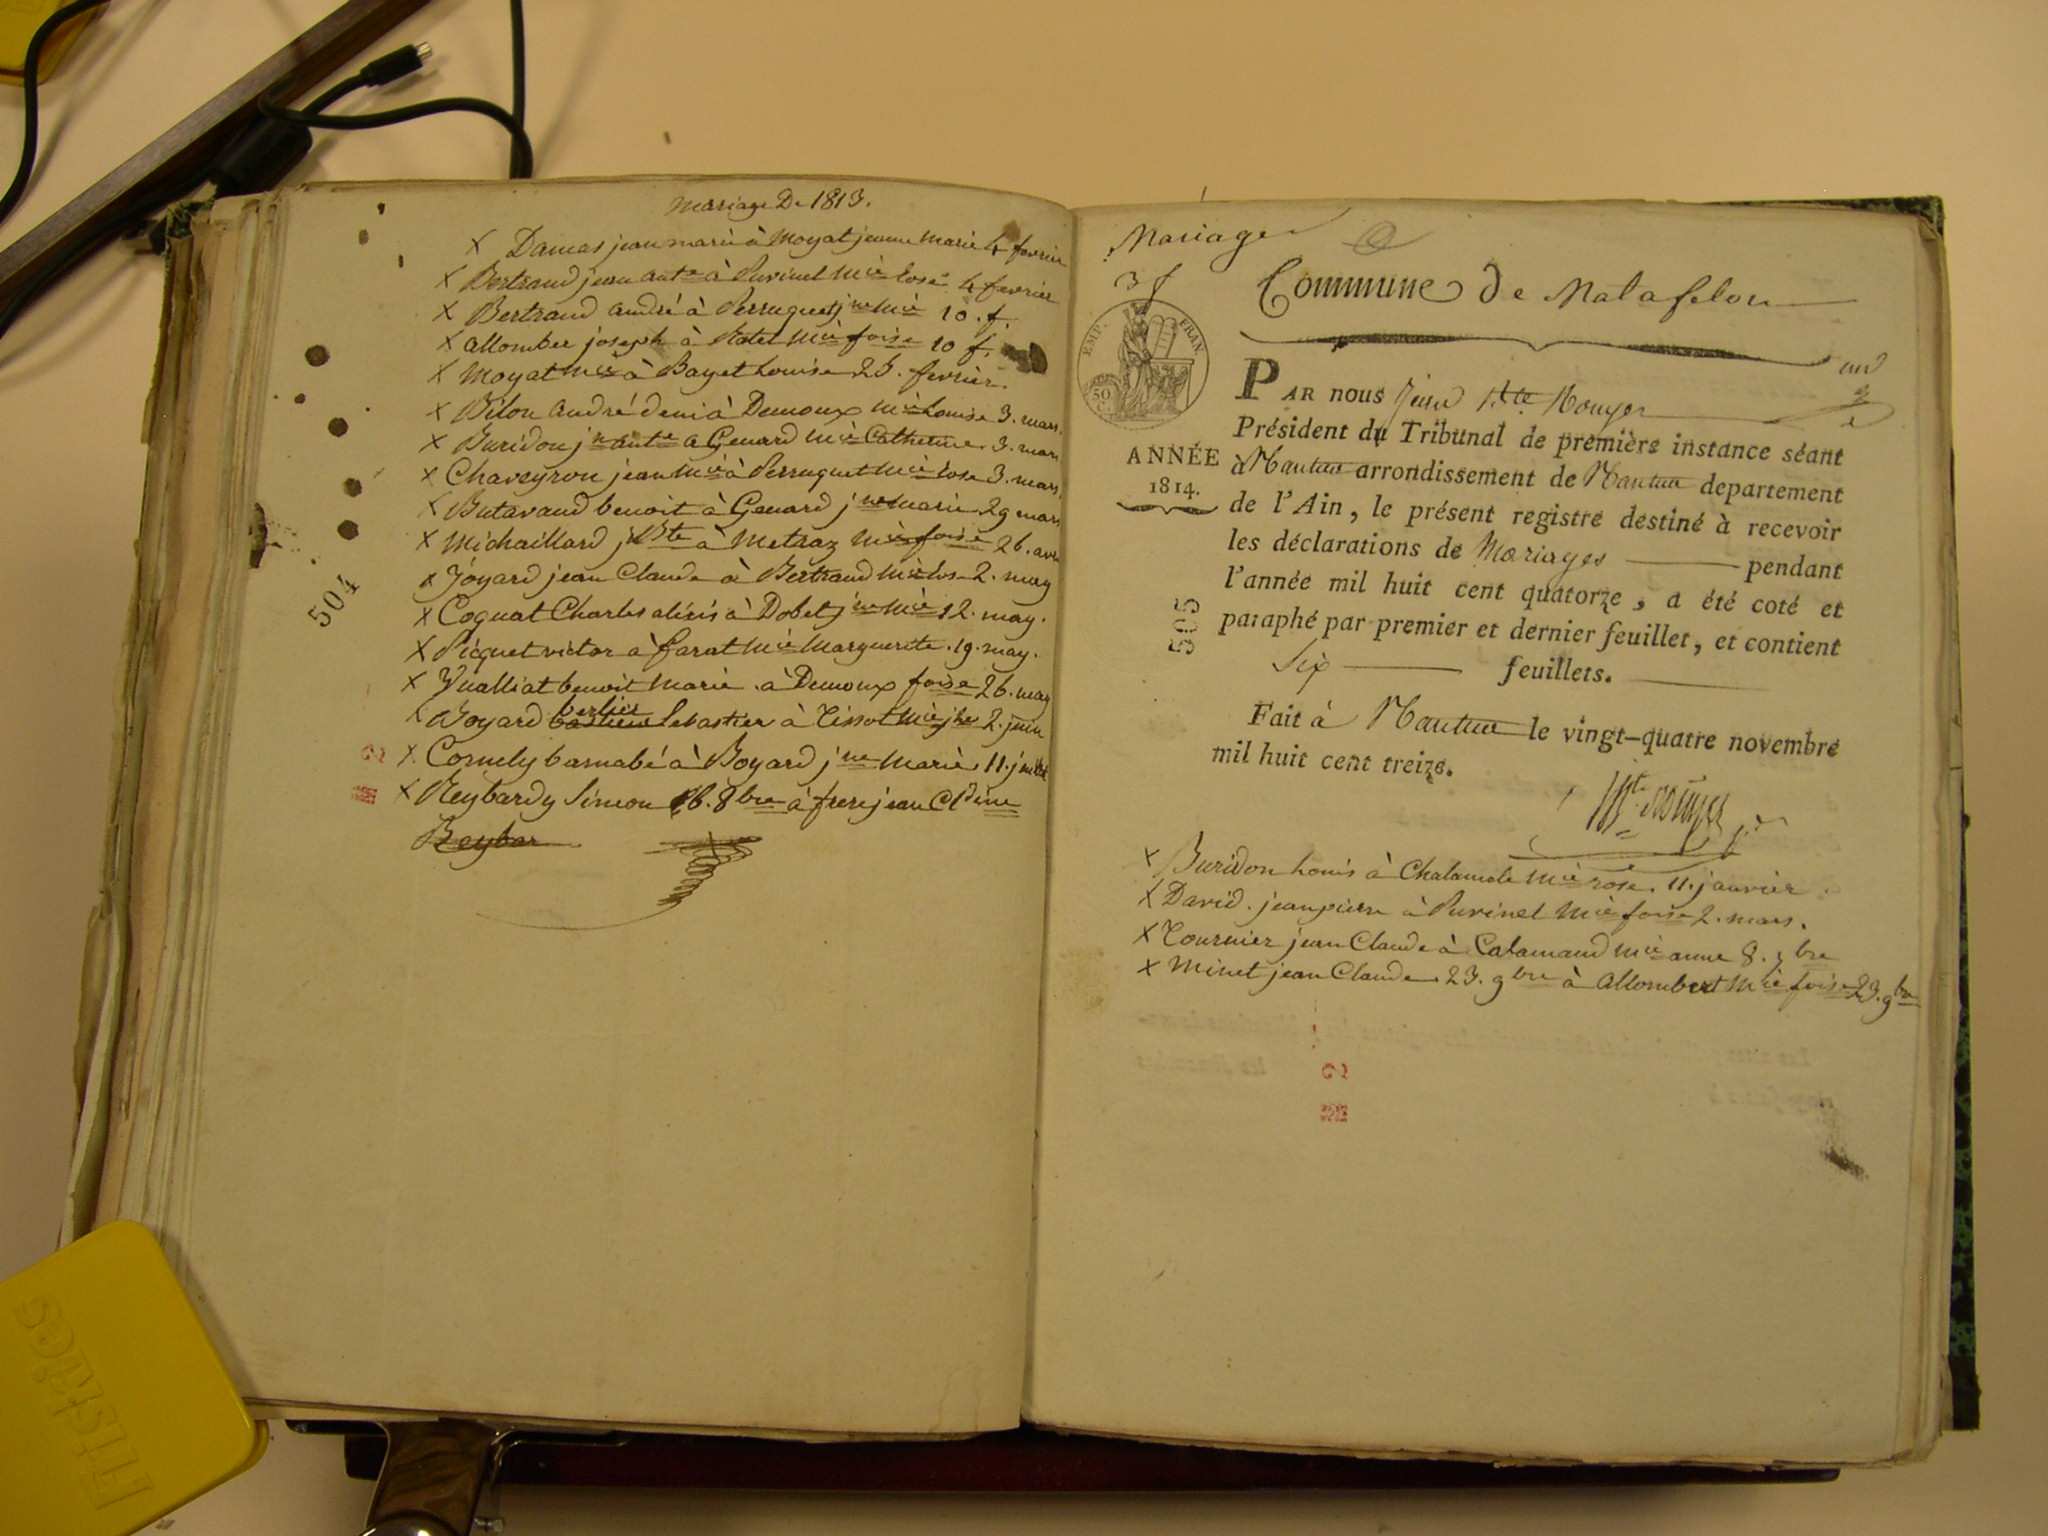 Mariage De 1813.
x Damas jean marie à Moyat jeanne Marie 4 fevrier
x Bertrand jean ante à Puvinel Mie rose 4 fevrier
x Bertrand andré à Perruquet jne Mie 10. f.
x allombee joseph à Mie foise 10 f.
x Moyat Mie à Bayet Louise 23. fevrier.
x Bilon andré deni à Demoux Mie Louise 3. mars.
x Buridon jn ante a Genard Mie Catherine 3. mars
x Chaveyron jean Mie à Perruquet Mie rose 3. mars.
x Butavand benoit à Genard jne marie 29 mars
x Michaillard j Bte à Metraz Mie foise 26. avri
x Joyard jean Claude à Bertrand Mie rose 2. may
x Coquat Charles alexis à Dobet jne Mie 12. may.
x Picquet victor à farat Mie Marguerite. 19. may.
x Vualliat benoit Marie à Demoux foise 26. may
x Goyard Sebastien à Tissot Mie jne 2. juin
x Cornely barnabé à Boyard jne Marie 11. juillet
x Reybardy Simon 6. 8bre à frere jean Cldine
Reybar
504
Mariage
3 f
Commune de Matafelon
EMP. FRAN.
50
C.
un
PAR nous Jean Bte Rouyer
Président du Tribunal de première instance séant
ANNÉE
1814.
à Nantua arrondissement de Nantua departement
de l'Ain, le présent registre destiné à recevoir
les déclarations de Mariages pendant
l'année mil huit cent quatorze, a été coté et
paraphé par premier et dernier feuillet, et contient
Six feuillets.
505
Fait à Nantua le vingt-quatre novembre
mil huit cent treize.
x Buridon Louis à Chalamele Mie rose. 11. janvier
x David jean pierre à Puvinel Mie foise 2. mars.
x Tournier jean Claude à Catamand Mie anne 8. 9bre
x Minet jean Claude 23. 9bre à allombert Mie foise 23. 9bre
ITSWES